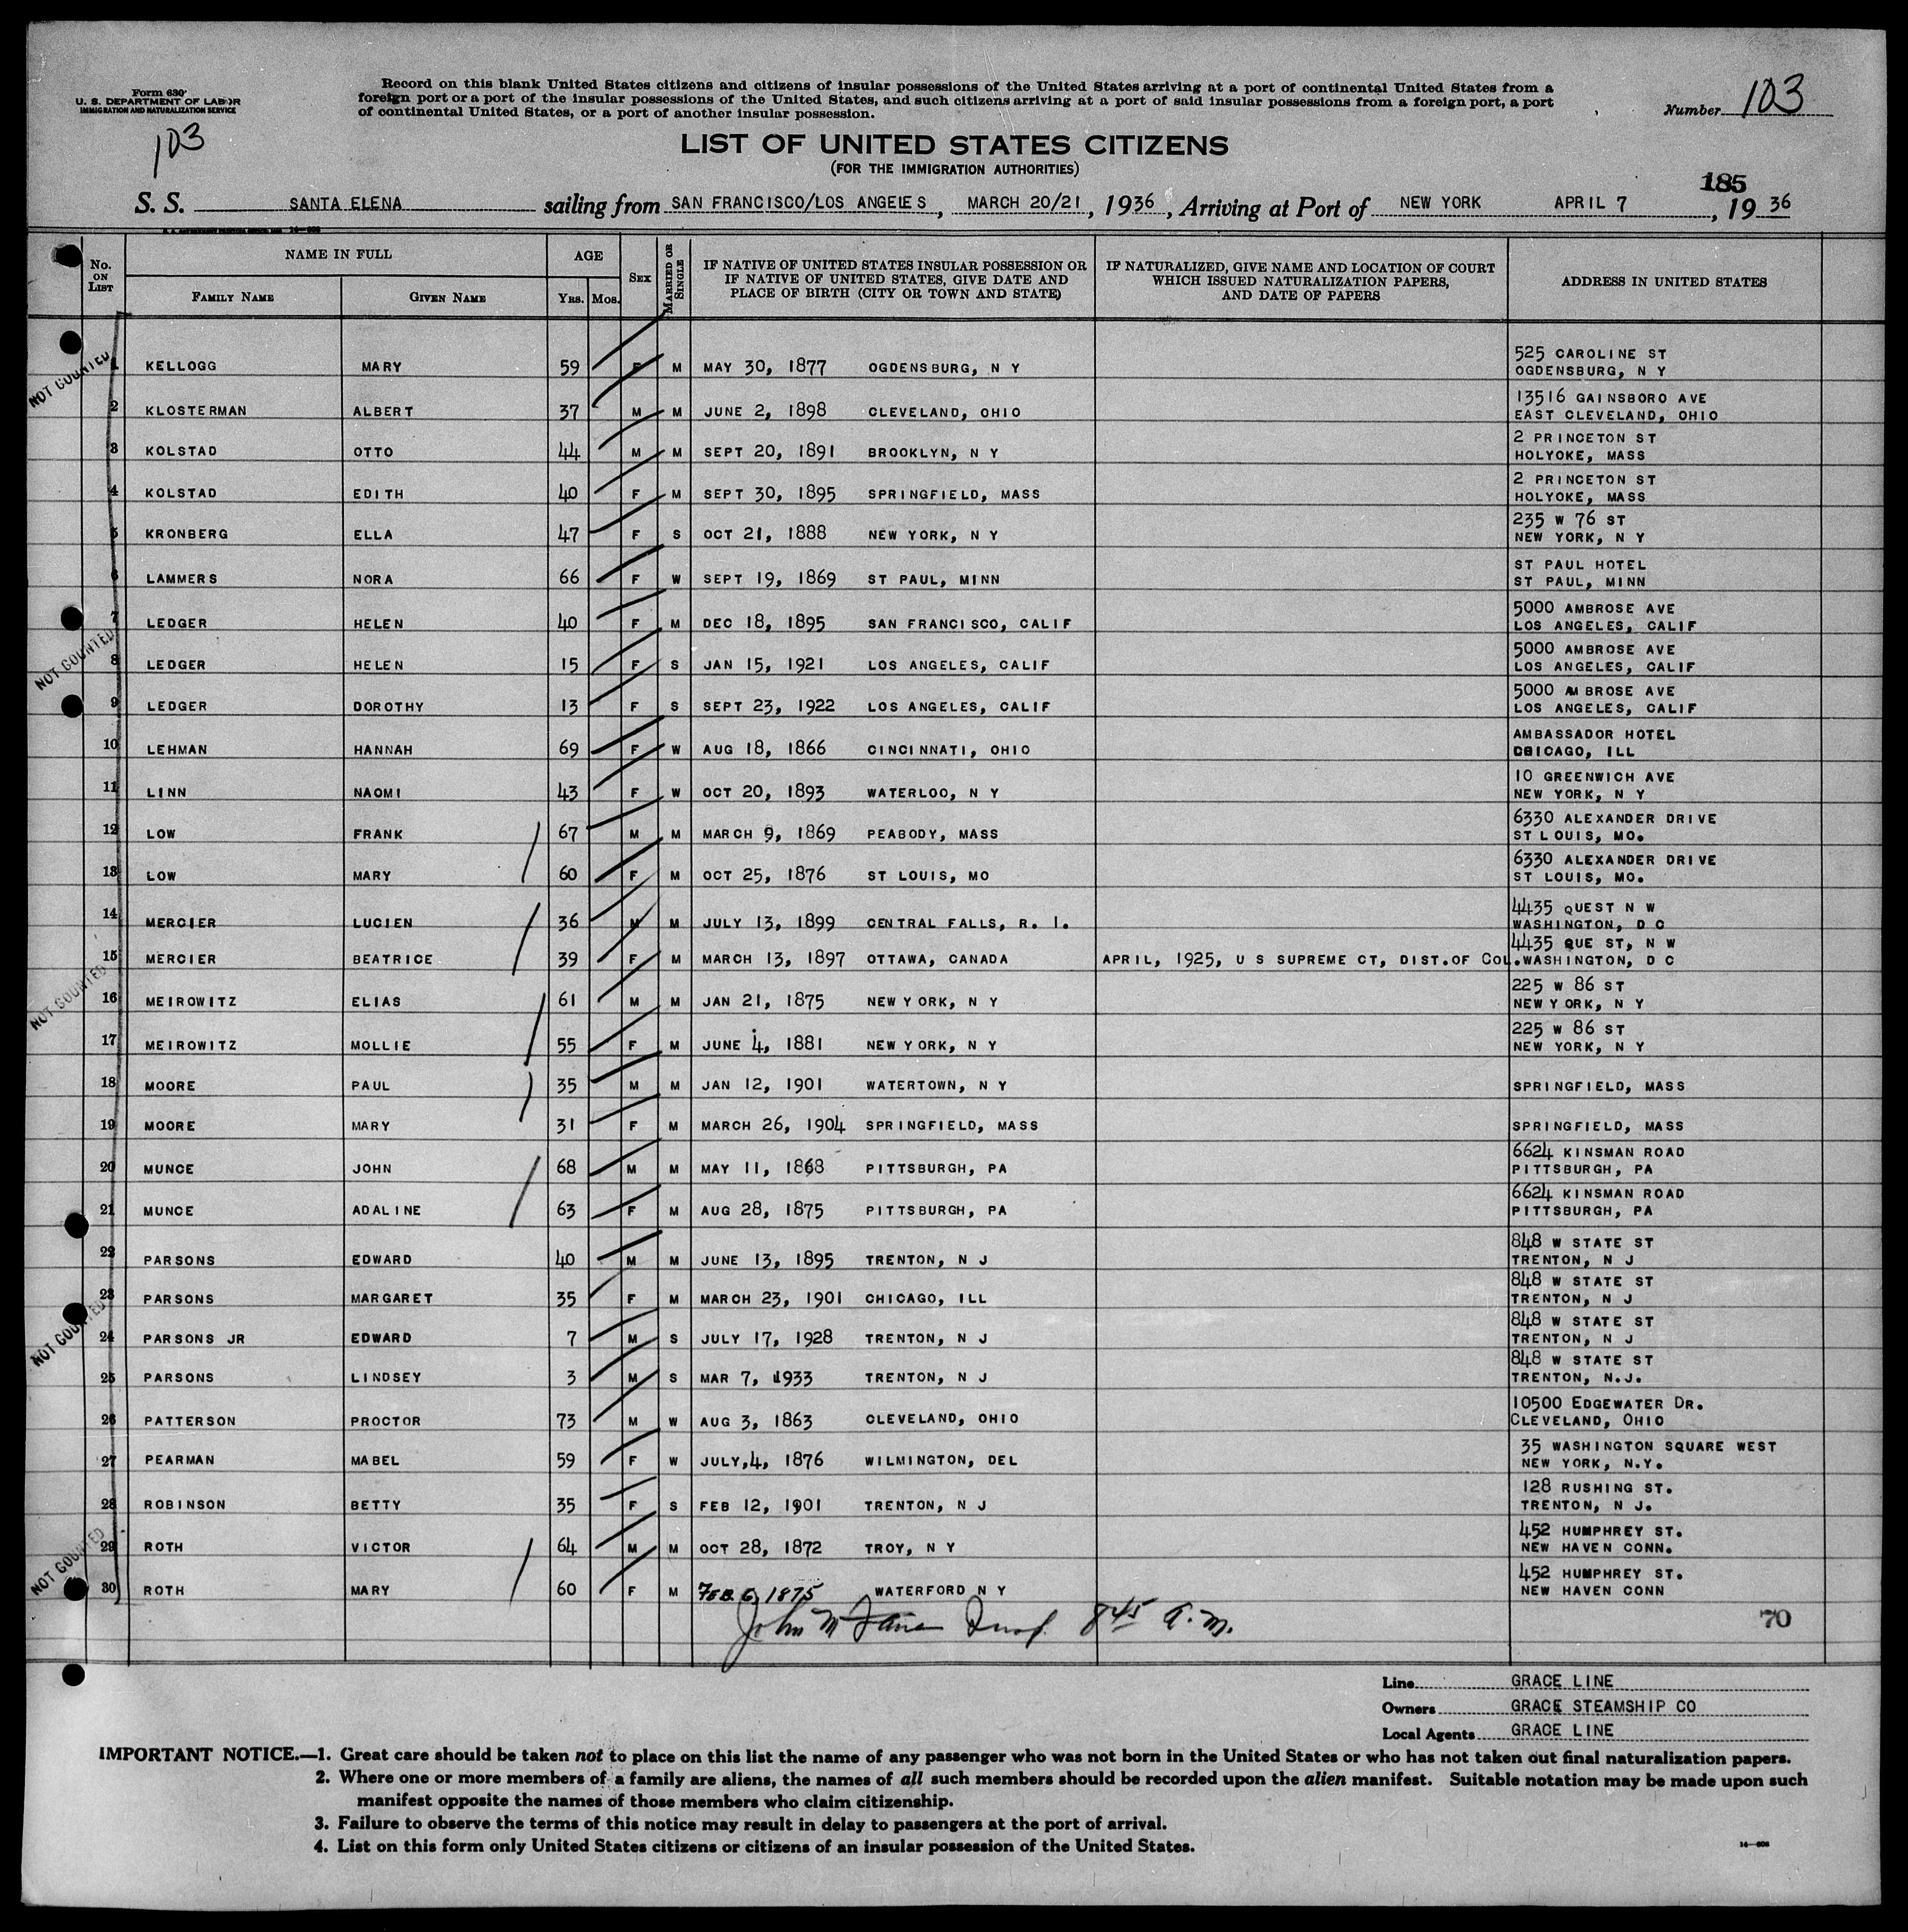 Form 630
U. S. DEPARTMENT OF LABOR
IMMIGRATION AND NATURALIZATION SERVICE
103
Record on this blank United States citizens and citizens of insular possessions of the United States arriving at a port of continental United States from a
foreign port or a port of the insular possessions of the United States, and such citizens arriving at a port of said insular possessions from a foreign port, a port
of continental United States, or a port of another insular possession.
Number 103
LIST OF UNITED STATES CITIZENS
(FOR THE IMMIGRATION AUTHORITIES)
185
S. S. SANTA ELENA sailing from SAN FRANCISCO/LOS ANGELES, MARCH 20/21, 1936, Arriving at Port of NEW YORK APRIL 7, 1936
No. ON LIST NAME IN FULL FAMILY NAME GIVEN NAME AGE YRS. MOS. SEX MARRIED OR SINGLE IF NATIVE OF UNITED STATES INSULAR POSSESSION OR IF NATIVE OF UNITED STATES, GIVE DATE AND PLACE OF BIRTH (CITY OR TOWN AND STATE) IF NATURALIZED, GIVE NAME AND LOCATION OF COURT WHICH ISSUED NATURALIZATION PAPERS, AND DATE OF PAPERS ADDRESS IN UNITED STATES
NOT COUNTED
1 KELLOGG MARY 59 F M MAY 30, 1877 OGDENSBURG, N Y 525 CAROLINE ST OGDENSBURG, N Y
2 KLOSTERMAN ALBERT 37 M M JUNE 2, 1898 CLEVELAND, OHIO 13516 GAINSBORO AVE EAST CLEVELAND, OHIO
3 KOLSTAD OTTO 44 M M SEPT 20, 1891 BROOKLYN, N Y 2 PRINCETON ST HOLYOKE, MASS
4 KOLSTAD EDITH 40 F M SEPT 30, 1895 SPRINGFIELD, MASS 2 PRINCETON ST HOLYOKE, MASS
5 KRONBERG ELLA 47 F S OCT 21, 1888 NEW YORK, N Y 235 W 76 ST NEW YORK, N Y
6 LAMMERS NORA 66 F W SEPT 19, 1869 ST PAUL, MINN ST PAUL HOTEL ST PAUL, MINN
7 LEDGER HELEN 40 F M DEC 18, 1895 SAN FRANCISCO, CALIF 5000 AMBROSE AVE LOS ANGELES, CALIF
NOT COUNTED
8 LEDGER HELEN 15 F S JAN 15, 1921 LOS ANGELES, CALIF 5000 AMBROSE AVE LOS ANGELES, CALIF
9 LEDGER DOROTHY 13 F S SEPT 23, 1922 LOS ANGELES, CALIF 5000 AMBROSE AVE LOS ANGELES, CALIF
10 LEHMAN HANNAH 69 F W AUG 18, 1866 CINCINNATI, OHIO AMBASSADOR HOTEL CHICAGO, ILL
11 LINN NAOMI 43 F W OCT 20, 1893 WATERLOO, N Y 10 GREENWICH AVE NEW YORK, N Y
12 LOW FRANK 67 M M MARCH 9, 1869 PEABODY, MASS 6330 ALEXANDER DRIVE ST LOUIS, MO.
13 LOW MARY 60 F M OCT 25, 1876 ST LOUIS, MO 6330 ALEXANDER DRIVE ST LOUIS, MO.
14 MERCIER LUCIEN 36 M M JULY 13, 1899 CENTRAL FALLS, R. I. 4435 QUEST N W WASHINGTON, D C
15 MERCIER BEATRICE 39 F M MARCH 13, 1897 OTTAWA, CANADA APRIL, 1925, U S SUPREME CT, DIST. OF COL. 4435 QUE ST, N W WASHINGTON, D C
NOT COUNTED
16 MEIROWITZ ELIAS 61 M M JAN 21, 1875 NEW YORK, N Y 225 W 86 ST NEW YORK, N Y
17 MEIROWITZ MOLLIE 55 F M JUNE 4, 1881 NEW YORK, N Y 225 W 86 ST NEW YORK, N Y
18 MOORE PAUL 35 M M JAN 12, 1901 WATERTOWN, N Y SPRINGFIELD, MASS
19 MOORE MARY 31 F M MARCH 26, 1904 SPRINGFIELD, MASS SPRINGFIELD, MASS
20 MUNCE JOHN 68 M M MAY 11, 1868 PITTSBURGH, PA 6624 KINSMAN ROAD PITTSBURGH, PA
21 MUNCE ADALINE 63 F M AUG 28, 1875 PITTSBURGH, PA 6624 KINSMAN ROAD PITTSBURGH, PA
22 PARSONS EDWARD 40 M M JUNE 13, 1895 TRENTON, N J 848 W STATE ST TRENTON, N J
23 PARSONS MARGARET 35 F M MARCH 23, 1901 CHICAGO, ILL 848 W STATE ST TRENTON, N J
NOT COUNTED
24 PARSONS JR EDWARD 7 M S JULY 17, 1928 TRENTON, N J 848 W STATE ST TRENTON, N J
25 PARSONS LINDSEY 3 M S MAR 7, 1933 TRENTON, N J 848 W STATE ST TRENTON, N.J.
26 PATTERSON PROCTOR 73 M W AUG 3, 1863 CLEVELAND, OHIO 10500 EDGEWATER DR. CLEVELAND, OHIO
27 PEARMAN MABEL 59 F W JULY,4, 1876 WILMINGTON, DEL 35 WASHINGTON SQUARE WEST NEW YORK, N.Y.
28 ROBINSON BETTY 35 F S FEB 12, 1901 TRENTON, N J 128 RUSHING ST. TRENTON, N J.
29 ROTH VICTOR 64 M M OCT 28, 1872 TROY, N Y 452 HUMPHREY ST. NEW HAVEN CONN.
NOT COUNTED
30 ROTH MARY 60 F M FEB. 6, 1875 WATERFORD N Y 452 HUMPHREY ST. NEW HAVEN CONN
John 845 A.M.
70
Line GRACE LINE
Owners GRACE STEAMSHIP CO
Local Agents GRACE LINE
IMPORTANT NOTICE.—1. Great care should be taken not to place on this list the name of any passenger who was not born in the United States or who has not taken out final naturalization papers.
2. Where one or more members of a family are aliens, the names of all such members should be recorded upon the alien manifest. Suitable notation may be made upon such
manifest opposite the names of those members who claim citizenship.
3. Failure to observe the terms of this notice may result in delay to passengers at the port of arrival.
4. List on this form only United States citizens or citizens of an insular possession of the United States.